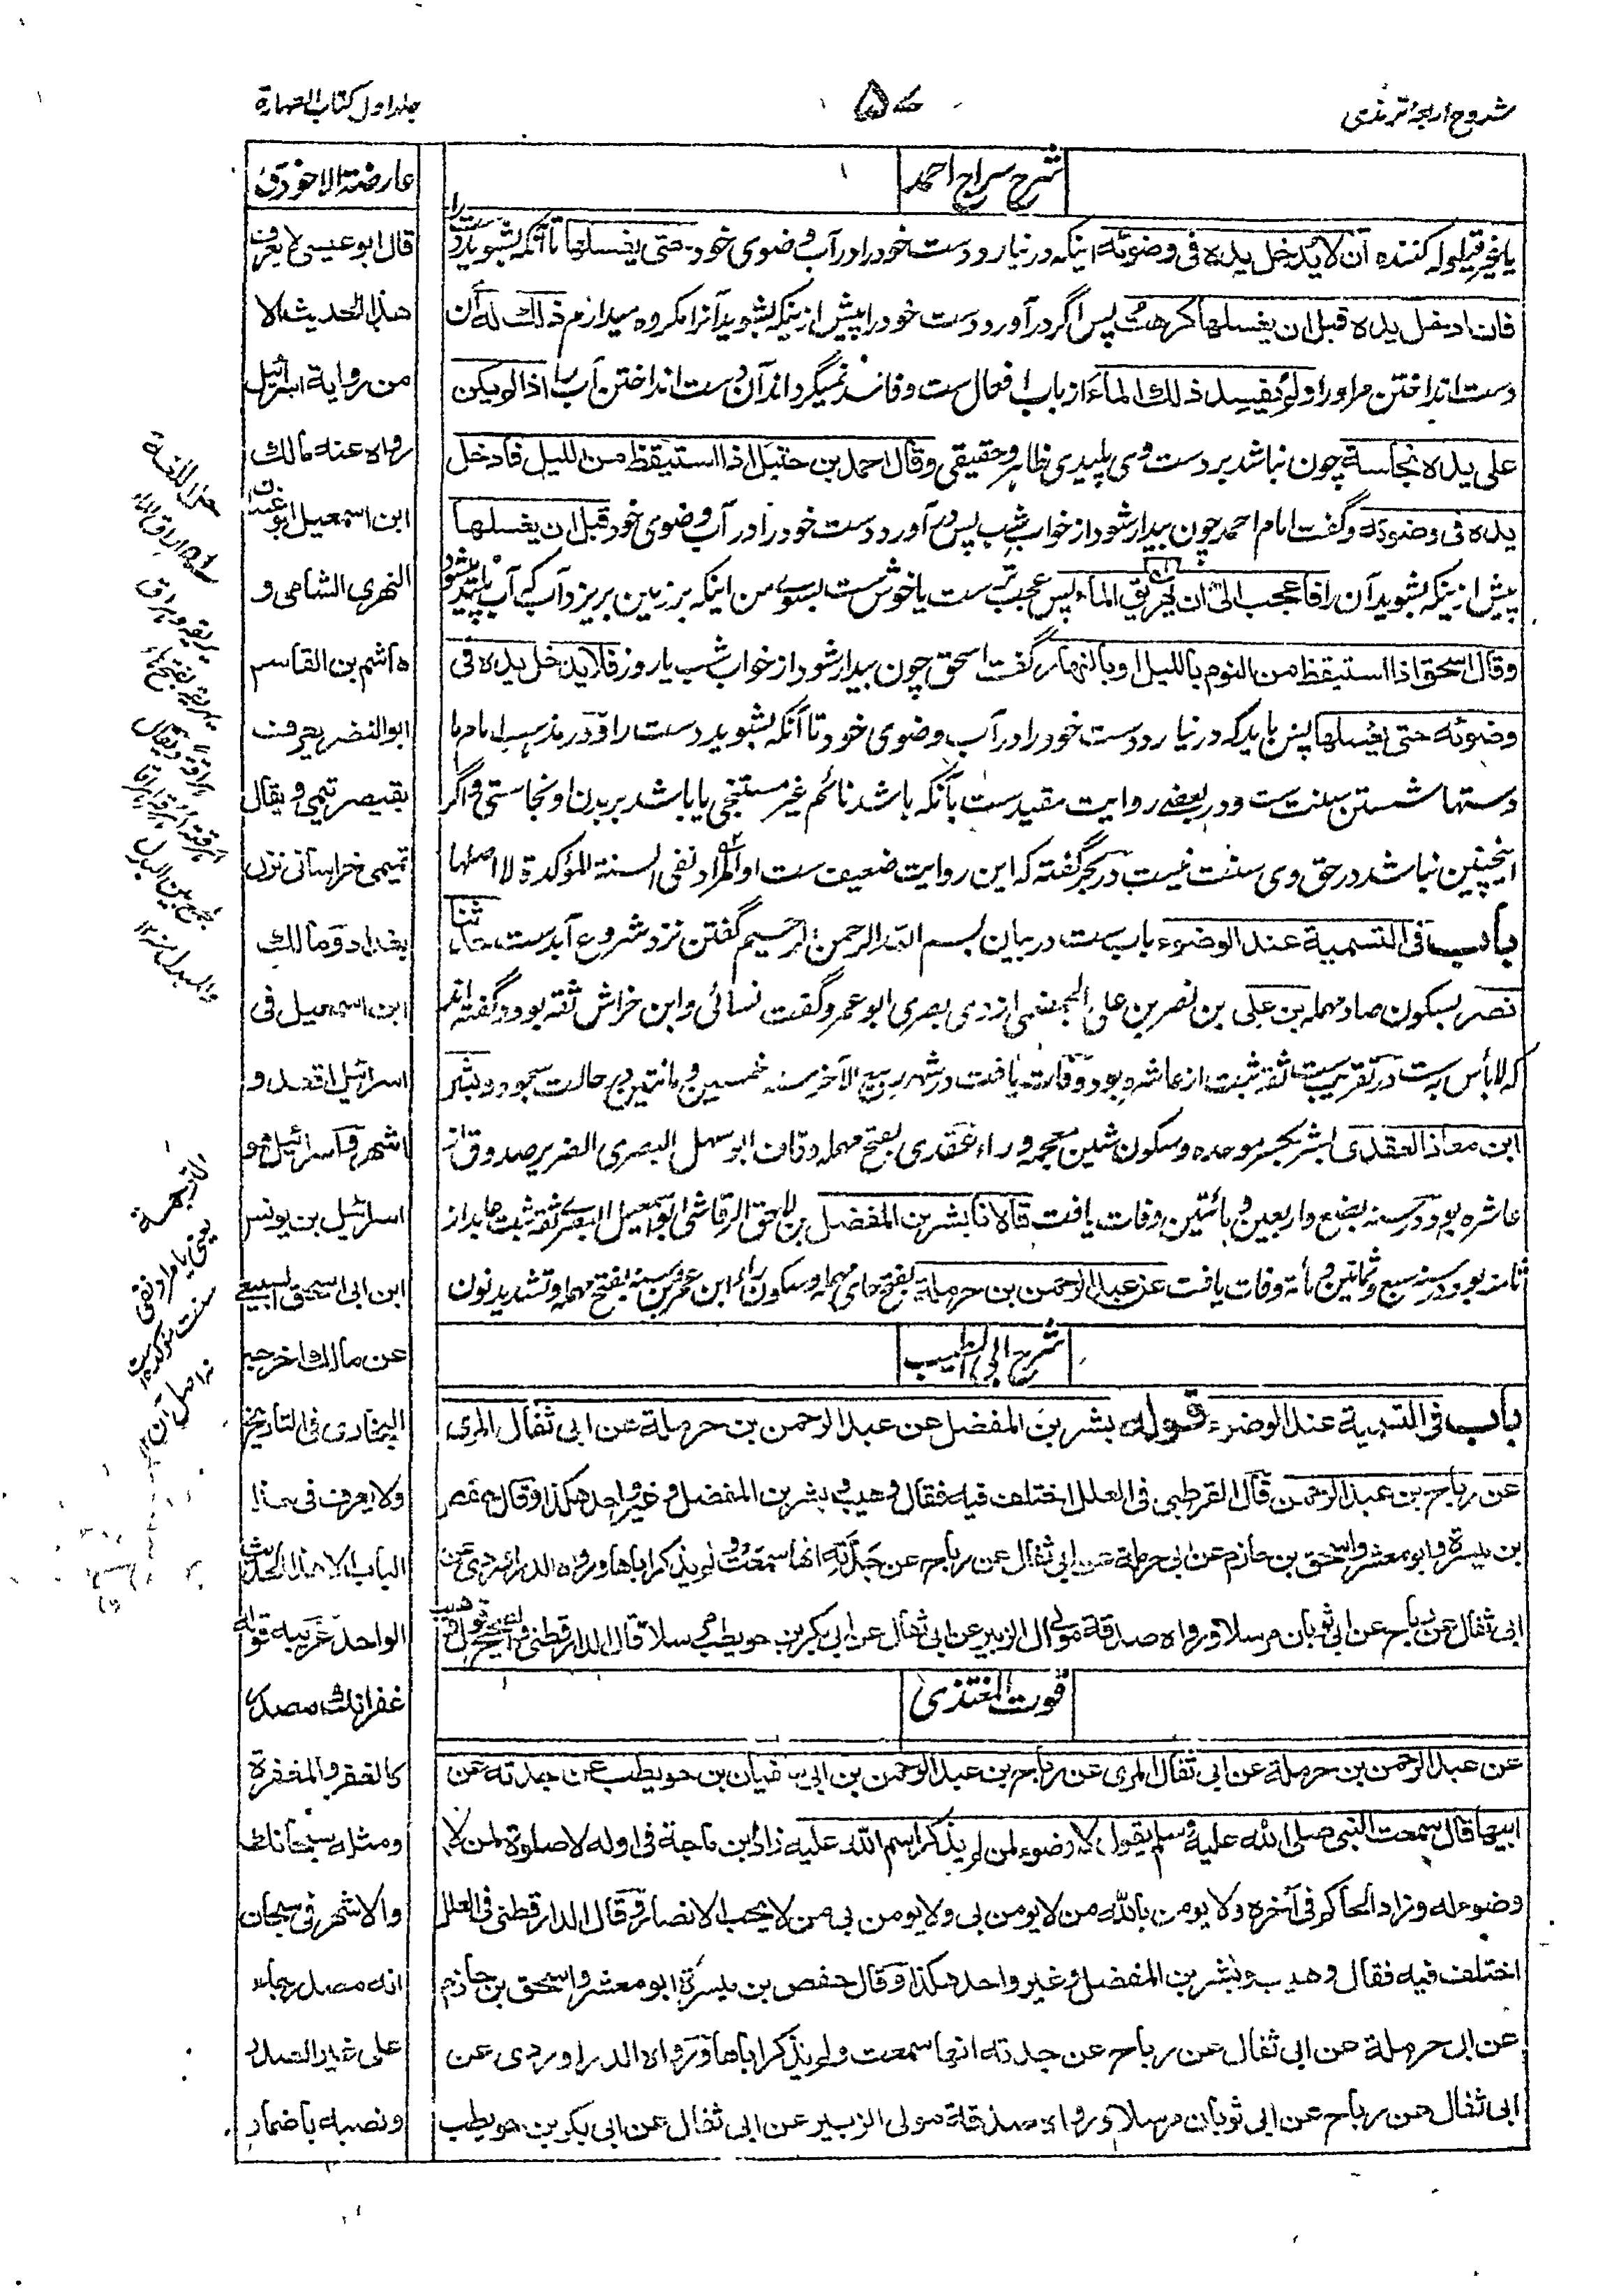 شروح اربعہ ترمذی
۵۷
جلد اول کتاب الطهارة
شرح سراج احمد
یا غیر قیلوله کننده آن لا یدخل یده فی وضوئه اینکه در نیارد دست خود را در آب وضوی خود حتی یغسلها تا آنکه بشوید دست را
فان ادخل یده قبل ان یغسلها کرهت پس اگر در آورد دست خود را پیش از ینکه بشوید آنرا مکروه میدارم ذلك له آن
دست انداختن مر او را ولم یفسد ذلك الماء از باب افعال ست و فاسد نمیگرداند آن دست انداختن آب را اذا لم یکن
علی یده نجاسة چون نباشد بر دست وی پلیدی ظاهر و حقیقی وقال احمد بن حنبل اذا استیقظ من اللیل فادخل
یده فی وضوئه و گفت امام احمد چون بیدار شود از خواب شب پس در آورد دست خود را در آب وضوی خود قبل ان یغسلها
پیش از ینکه بشوید آن را فاعجب الیّ ان یهریق الماء پس عجب تر ست یا خوش ست بسوے من اینکه بر زمین بریزد آب که آب پلید میشود
وقال اسحق اذا استیقظ من النوم باللیل او بالنهار گفت اسحق چون بیدار شود از خواب شب یا روز فلا یدخل یده فی
وضوئه حتی یغسلها پس باید که در نیارد دست خود را در آب وضوی خود تا آنکه بشوید دست را و در مذهب امام ما
دستها شستن سنت ست و در بعضے روایت مقید ست بآنکه باشد نائم غیر مستنجی یا باشد بر بدن او نجاستی و اگر
اینچنین نباشد در حق وی سنت نیست در بحر گفته که این روایت ضعیف ست او المراد نفی السنة المؤکدة لا اصلها
باب فی التسمیة عند الوضوء باب ست در بیان بسم الله الرحمن الرحیم گفتن نزد شروع آبدست حدثنا
نصر بسکون صاد مهمله بن علی بن نصر بن علی الجهضمی ازدی بصری ابو عمرو گفت نسائی و ابن خراش ثقه بود و گفته اند
که لا بأس به ست در تقریب ست ثقه ثبت از عاشره بود وفات یافت در شهر ربیع الآخر سنه خمسین و مائتین در حالت سجود و بشر
ابن معاذ العقدی بشر بکسر موحده و سکون شین معجمه و راء عقدی بفتح مهمله و قاف ابو سهل البصری الضریر صدوق از
عاشره بود در سنه بضع و اربعین و مائتین وفات یافت قالا نا بشر بن المفضل بن لاحق الرقاشی ابو اسمعیل البصرے ثقه ثبت عابد از
ثامنه بود در سنه سبع و ثمانین و مأة وفات یافت عن عبد الرحمن بن حرملة بفتح حای مهمله و سکون راء ابن عمرو بن سنه بفتح مهمله و تشدید نون
شرح ابی الطیب
باب فی التسمیة عند الوضوء قوله بشر بن المفضل عن عبد الرحمن بن حرملة عن ابی ثفال المری
عن رباح بن عبد الرحمن قال القرطبی فی العلل اختلف فیه فقال وهیب و بشر بن المفضل و غیر واحد هکذا وقال حفص
بن میسرة و ابو معشر و اسحق بن حازم عن ابی حرملة عن ابی ثفال عن رباح عن جدته انها سمعت ولم یذکر اباها و رواه الدراوردی عن
ابی ثفال عن رباح عن ابی ثوبان مرسلا و رواه صدقة مولی ال الزبیر عن ابی ثفال عن ابی بکر بن حویطب مرسلا قال الدارقطنی و الصحیح قول وهیب
قوت المغتذی
عن عبد الرحمن بن حرملة عن ابی ثفال المری عن رباح بن عبد الرحمن بن ابی سفیان بن حویطب عن جدته عن
ابیها قال سمعت النبی صلی الله علیه وسلم یقول لا وضوء لمن لم یذکر اسم الله علیه زاد ابن ماجة فی اوله لا صلوة لمن لا
وضوء له و زاد الحاکم فی آخره ولا یومن بالله من لا یومن بی ولا یومن بی من لا یحب الانصار و قال الدارقطنی فی العلل
اختلف فیه فقال وهیب و بشر بن المفضل و غیر واحد هکذا و قال حفص بن میسرة و ابو معشر و اسحق بن حازم
عن ابن حرملة عن ابی ثفال عن رباح عن جدته انها سمعت ولم یذکر اباها و رواه الدراوردی عن
ابی ثفال عن رباح عن ابی ثوبان مرسلا و رواه صدقة مولی الزبیر عن ابی ثفال عن ابی بکر بن حویطب
عارضة الاحوذی
قال ابو عیسی لا یعرف
هذا الحدیث الا
من روایة اسرائیل
رواه عنه مالك
ابن اسمعیل ابو غسان
النهدی الشامی و
هاشم بن القاسم
ابو النضر یعرف
بقیصر تمیمی ویقال
تمیمی خراسانی نزل
بغداد و مالك
ابن اسمعیل فی
اسرائیل اقعد و
اشهر و اسرائیل هو
اسرائیل بن یونس
ابن ابی اسحق السبیعی
عن مالك اخرجه
البخاری فی التاریخ
ولا یعرف فی هذا
الباب الا هذا الحدیث
الواحد غریبه قوله
غفرانك مصدر
کالغفر والمغفرة
ومثله سبحانك
والاشهر فی سبحان
انه مصدر جاء
علی غیر الصدر
ونصبه باضمار
حل اللغة
الترجمة
یعنی یا مراد نفی
سنت مؤکده است
نه اصل آن